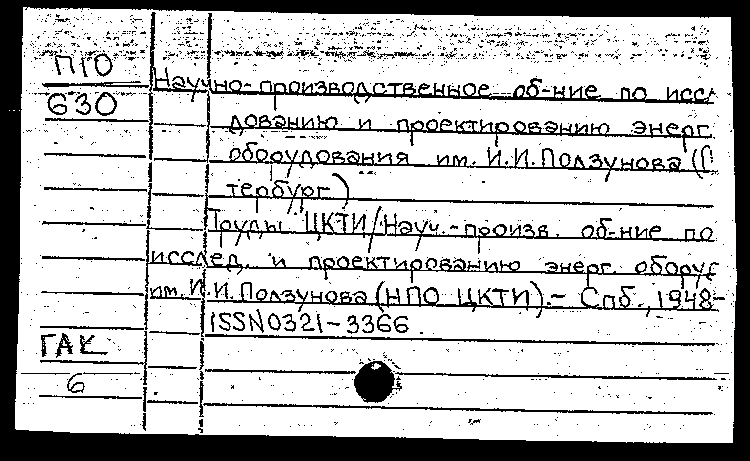 П10
630
Научно-производственное об-ние по иссл
дованию и проектированию энерг.
оборудования им. И.И.Ползунова (П
тербург)
Труды ЦКТИ/Науч.-произв. об-ние по
исслед. и проектированию энерг. оборуд
им. И.И.Ползунова (НПО ЦКТИ).- Спб., 1948-
ISSN0321-3366.
ГАК
6